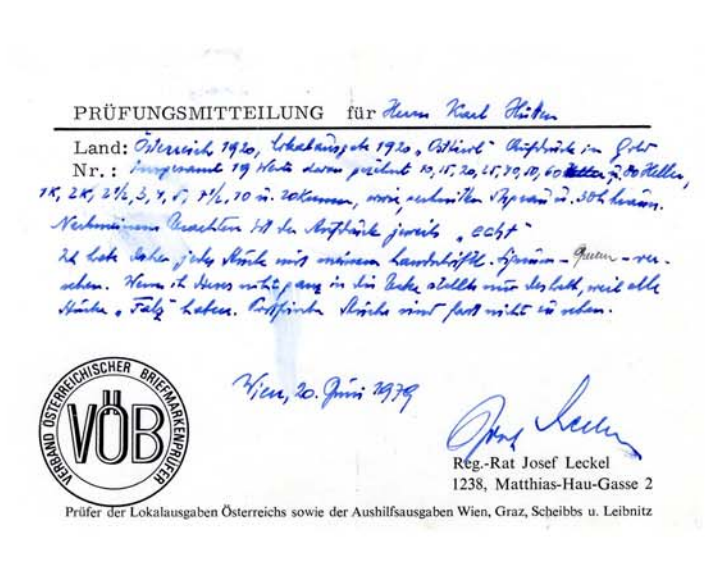 PRÜFUNGSMITTEILUNG für Herrn Karl
Land: Österreich 1920, Lokalausgabe 1920 „Osttirol“ Aufdrucke in Gold
Nr.: Insgesamt 19 Werte davon 10, 15, 20, 25, 40, 50, 60 u. 80 Heller,
1K, 2K, 2½, 3, 4, 5, 7½, 10 u. 20 Kronen, sowie, u. 30h
Nach meinem Erachten ist der Aufdruck jeweils „echt“
Ich habe daher jedes Stück mit meinem handschriftl. Signum - - ver-
sehen. Wenn ich dieses nicht ganz in die Ecke stellte nur deshalb, weil alle
Stücke „Falz“ haben. Postfrische Stücke sind fast nicht zu sehen.
Wien, 20. Juni 1979
VERBAND ÖSTERREICHISCHER BRIEFMARKENPRÜFER
VÖB
Reg.-Rat Josef Leckel
1238, Matthias-Hau-Gasse 2
Prüfer der Lokalausgaben Österreichs sowie der Aushilfsausgaben Wien, Graz, Scheibbs u. Leibnitz